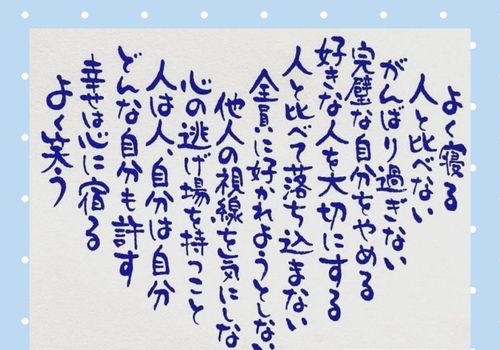 よく寝る
人と比べない
がんばり過ぎない
完璧な自分をやめる
好きな人を大切にする
人と比べて落ち込まない
全員に好かれようとしない
他人の視線を気にしな
心の逃げ場を持つこと
人は人、自分は自分
どんな自分も許す
幸せは心に宿る
よく笑う